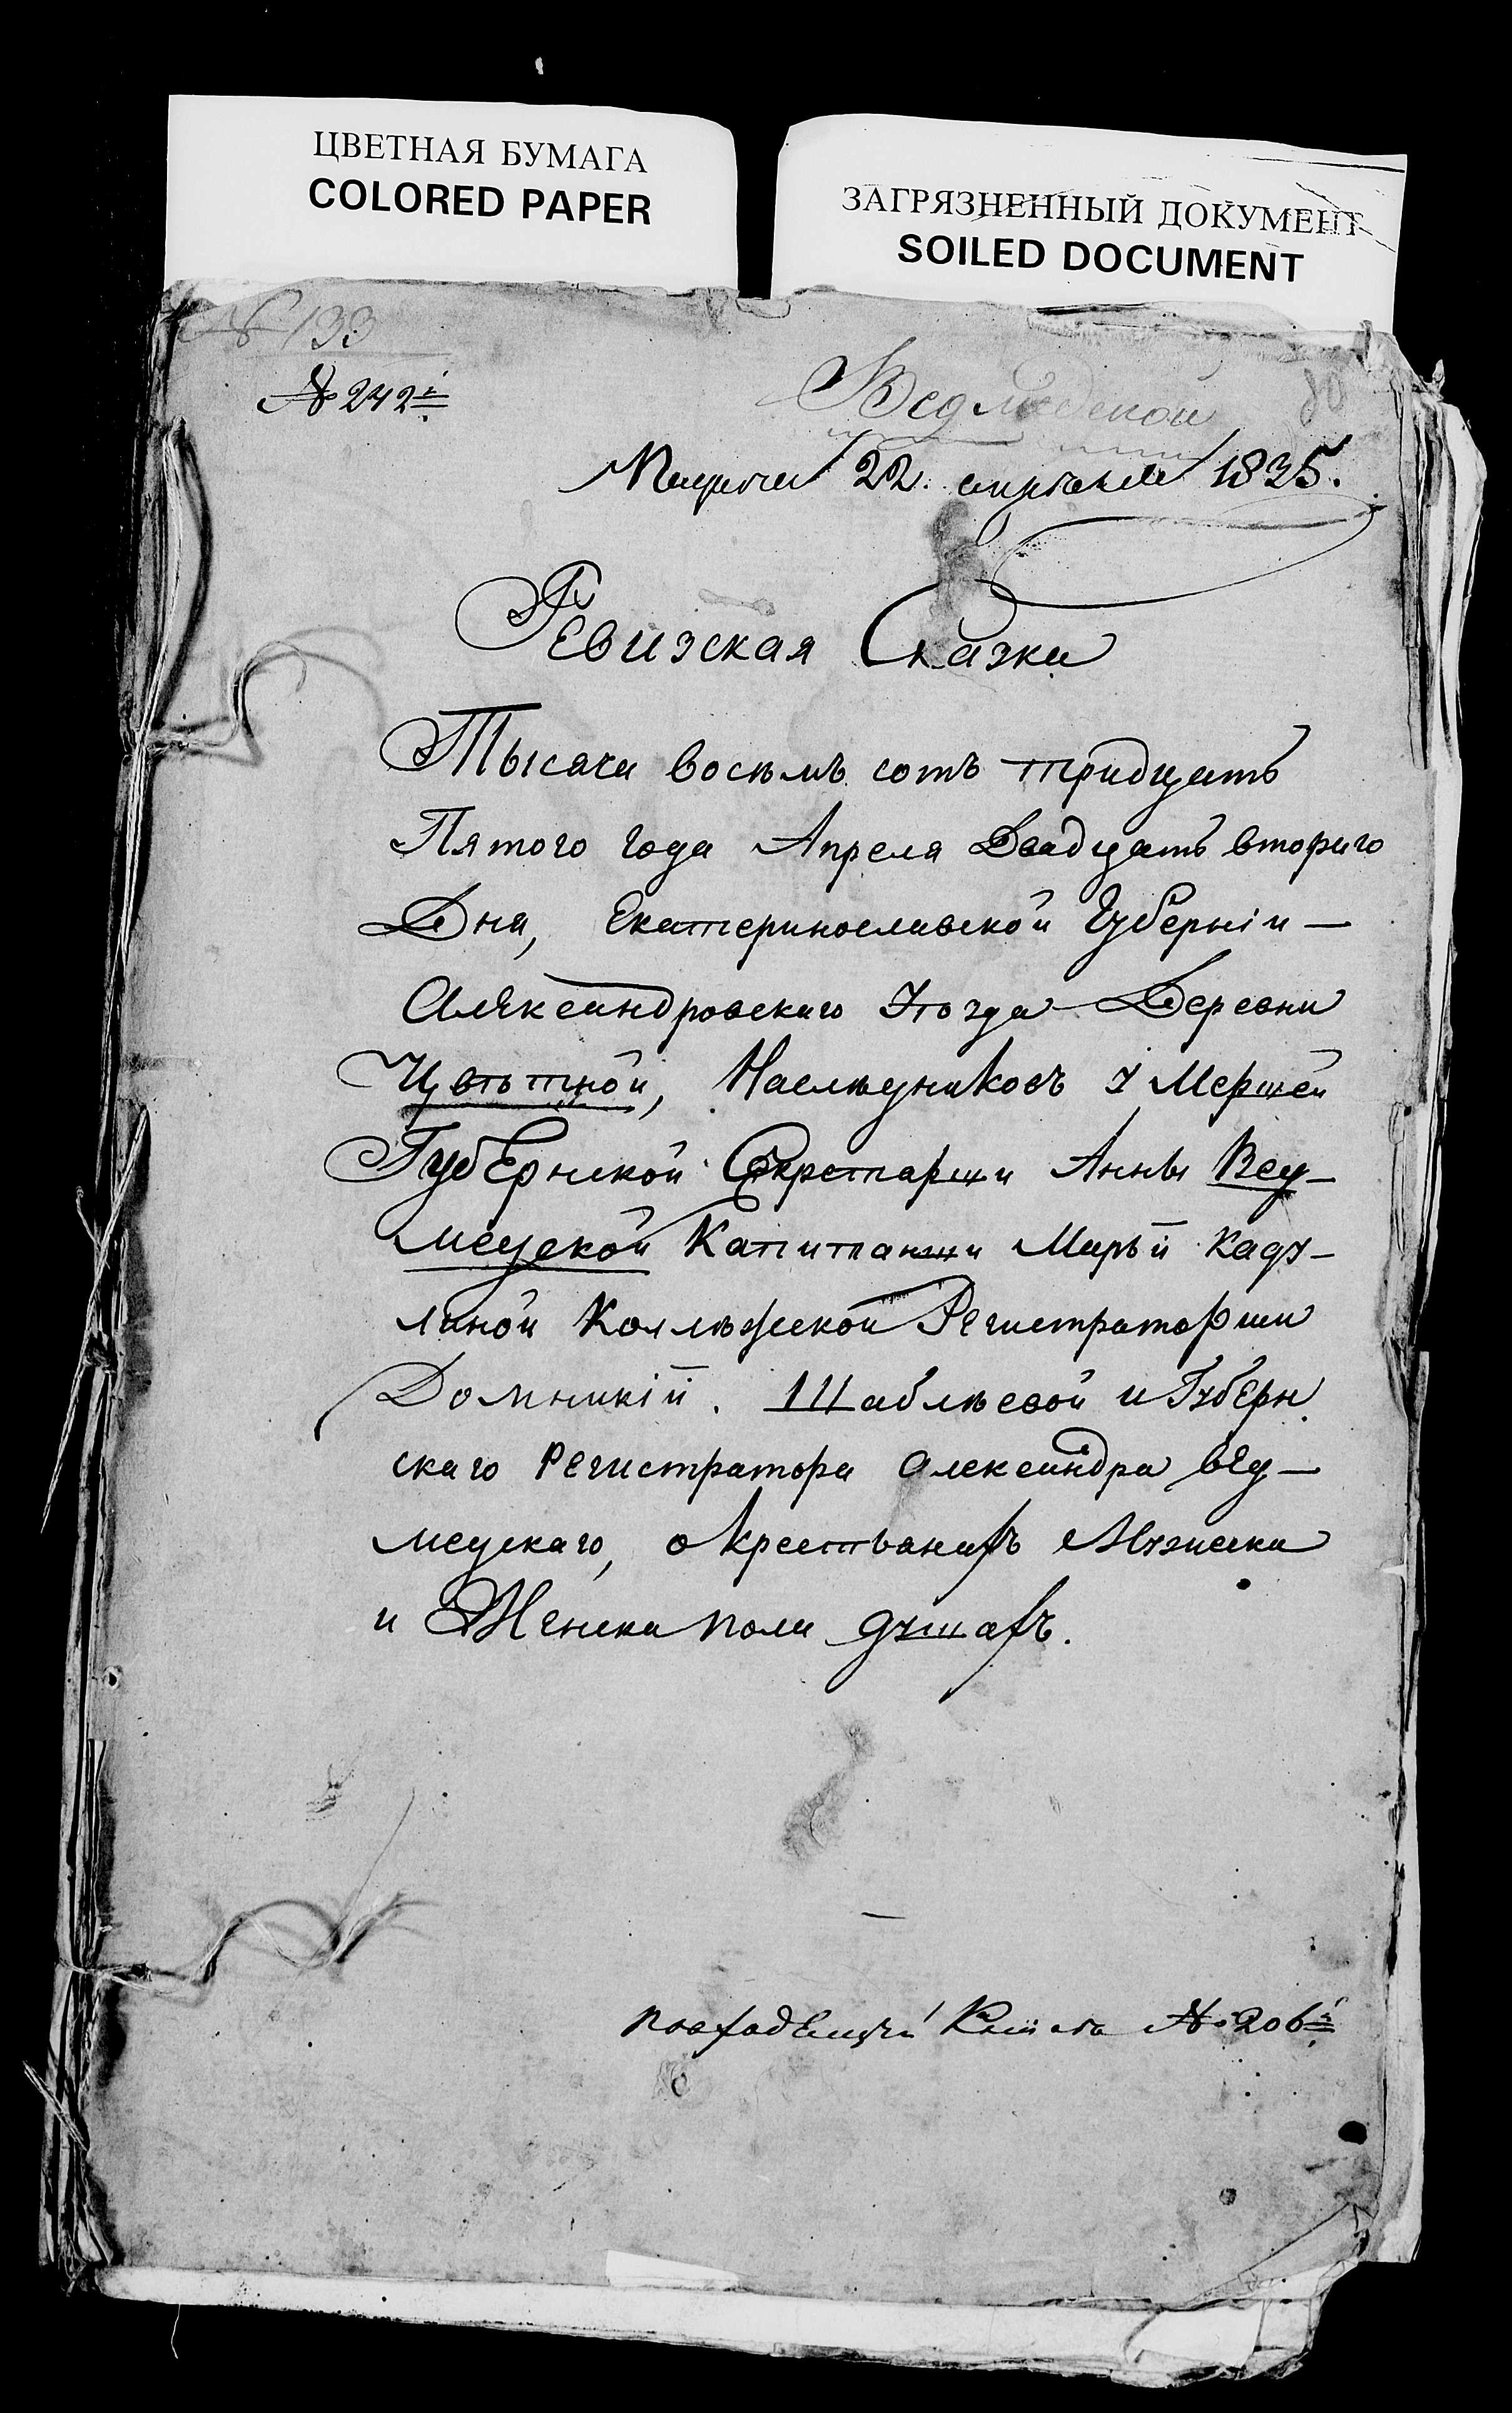 ЦВЕТНАЯ БУМАГА
COLORED PAPER
ЗАГРЯЗНЕННЫЙ ДОКУМЕНТ
SOILED DOCUMENT
№ 133
№ 242й
80
Ведмедской
22. апреля 1835.
Ревизская Сказка
Тысяча восемь сотъ тридцать
Пятого года Апреля Двадцать вторыго
Дня, Екатеринославской Губерніи —
Александровскаго Уѣзда Деревни
Цвѣтной, Наслѣдниковъ Умершей
Губернской Секретарши Анны Вед-
медской Капитанши Марьи Каду-
линой Коллѣжской Регистраторши
Домникіи. Шаблѣевой и Губерн
скаго Регистратора Александра Вед-
медскаго, о крестьянахъ Мужеска
и Женска пола душахъ.
по входящей книге № 206й